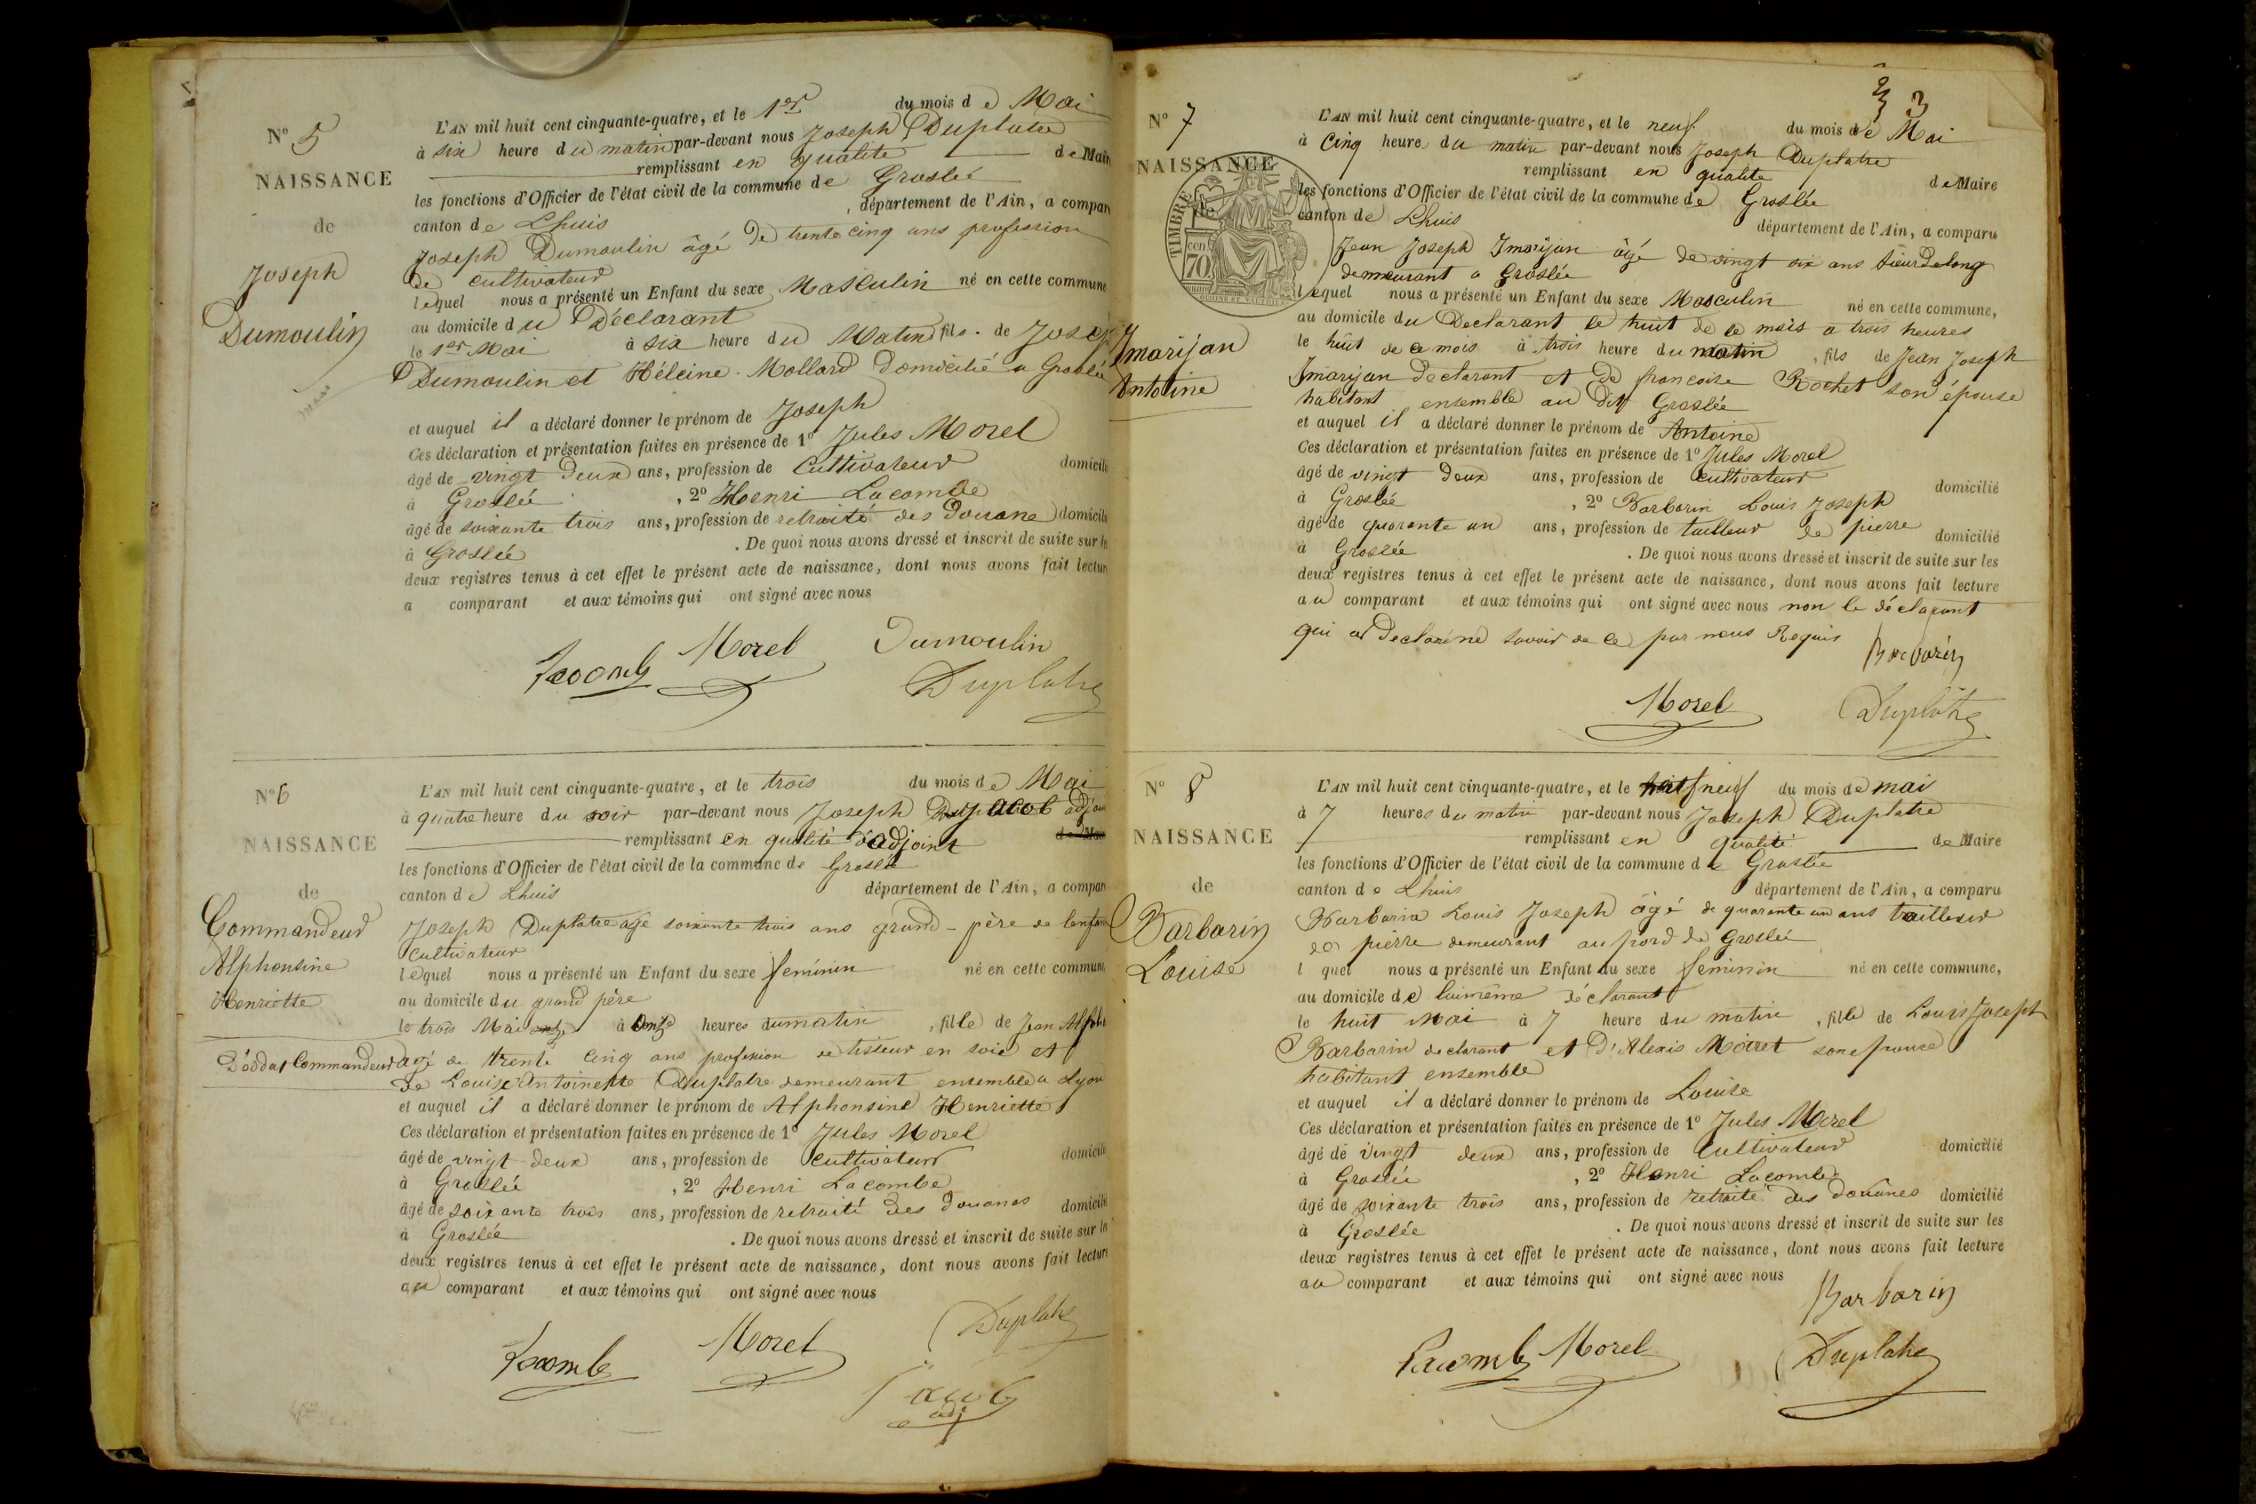 N° 5
NAISSANCE
de
Joseph
Dumoulin
L'AN mil huit cent cinquante-quatre, et le 1er du mois de Mai
à six heure du matin par-devant nous Joseph Duplatre
remplissant en qualité de Maire
les fonctions d'Officier de l'état civil de la commune de Groslée
canton de Lhuis , département de l'Ain, a compar
Joseph Dumoulin âgé de trente cinq ans profession
de cultivateur
lequel nous a présenté un Enfant du sexe Masculin né en cette commune
au domicile du Déclarant
le 1er Mai à six heure du Matin fils de Joseph
Dumoulin et Héleine Mollard domicilié a Groslée
et auquel il a déclaré donner le prénom de Joseph
Ces déclaration et présentation faites en présence de 1° Jules Morel
âgé de vingt deux ans, profession de Cultivateur domicilié
à Groslée , 2° Henri Lacombe
âgé de soixante trois ans, profession de retraité des Douane domicilié
à Groslée . De quoi nous avons dressé et inscrit de suite sur les
deux registres tenus à cet effet le présent acte de naissance, dont nous avons fait lecture
a comparant et aux témoins qui ont signé avec nous
Lacombe Morel Dumoulin
Duplatre
N° 6
NAISSANCE
de
Commandeur
Alphonsine
Henriette
L'AN mil huit cent cinquante-quatre, et le trois du mois de Mai
à quatre heure du soir par-devant nous Joseph Jacob adjoint
remplissant en qualité d'adjoint
les fonctions d'Officier de l'état civil de la commune de Groslée
canton de Lhuis département de l'Ain, a compar
Joseph Duplatre agé soixante trois ans grand-père de lenfant
cultivateur
lequel nous a présenté un Enfant du sexe feminin né en cette commune
au domicile du grand père
le trois Mai à onze heures du matin , fille de Jean Alph
Déodat Commandeur agé de trente cinq ans profession de tisseur en soie et
de Louise Antoinette Duplatre demeurant ensemble a Lyon
et auquel il a déclaré donner le prénom de Alphonsine Henriette
Ces déclaration et présentation faites en présence de 1° Jules Morel
âgé de vingt-deux ans, profession de cultivateur domicilié
à Groslée , 2° Henri Lacombe
âgé de soixante trois ans, profession de retraité des Douanes domicilié
à Groslée . De quoi nous avons dressé et inscrit de suite sur les
deux registres tenus à cet effet le présent acte de naissance, dont nous avons fait lecture
au comparant et aux témoins qui ont signé avec nous
Duplatre
Lacombe Morel
Jacob
adj
3
N° 7
NAISSANCE
de
TIMBRE
70 cen
Imarijan
Antoine
L'AN mil huit cent cinquante-quatre, et le neuf du mois de Mai
à Cinq heure du matin par-devant nous Joseph Duplatre
remplissant en qualité de Maire
les fonctions d'Officier de l'état civil de la commune de Groslée
canton de Lhuis département de l'Ain, a comparu
Jean Joseph Imarijan âgé de vingt six ans sieur de long
demeurant a Groslée
lequel nous a présenté un Enfant du sexe Masculin né en cette commune,
au domicile du Declarant le huit de ce mois a trois heures
le huit de ce mois à trois heure du matin , fils de Jean Joseph
Imarijan Declarant et de francoise Rochet son épouse
habitant ensemble au dit Groslée
et auquel il a déclaré donner le prénom de Antoine
Ces déclaration et présentation faites en présence de 1° Jules Morel
âgé de vingt deux ans, profession de cultivateur domicilié
à Groslée , 2° Barbarin Louis Joseph
âgé de quarante un ans, profession de tailleur de pierre domicilié
à Groslée . De quoi nous avons dressé et inscrit de suite sur les
deux registres tenus à cet effet le présent acte de naissance, dont nous avons fait lecture
au comparant et aux témoins qui ont signé avec nous non le déclarant
qui a Declaré ne savoir de ce par nous Requis Barbarin
Morel Duplatre
N° 8
NAISSANCE
de
Barbarin
Louise
L'AN mil huit cent cinquante-quatre, et le neuf du mois de mai
à 7 heures du matin par-devant nous Joseph Duplatre
remplissant en qualité de Maire
les fonctions d'Officier de l'état civil de la commune de Groslée
canton de Lhuis département de l'Ain, a comparu
Barbarin Louis Joseph âgé de quarante un ans tailleur
de pierre demeurant au pord de Groslée
l quel nous a présenté un Enfant du sexe feminin né en cette commune,
au domicile de luimême déclarant
le huit Mai à 7 heure du matin , fille de Louis Joseph
Barbarin declarant et D'Alexis Moiret son epouse
habitant ensemble
et auquel il a déclaré donner le prénom de Louise
Ces déclaration et présentation faites en présence de 1° Jules Morel
âgé de vingt deux ans, profession de Cultivateur domicilié
à Groslée , 2° Henri Lacombe
âgé de soixante trois ans, profession de retraité des douanes domicilié
à Groslée . De quoi nous avons dressé et inscrit de suite sur les
deux registres tenus à cet effet le présent acte de naissance, dont nous avons fait lecture
au comparant et aux témoins qui ont signé avec nous
Barbarin
Lacombe Morel Duplatre